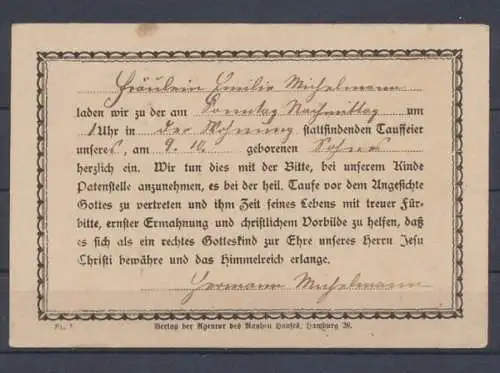 Fräulein Emilie Michelmann
laden wir zu der am Sonntag Nachmittag um
1 Uhr in der Wohnung stattfindenden Tauffeier
unseres, am 9. 10. geborenen Sohnes
herzlich ein. Wir tun dies mit der Bitte, bei unserem Kinde
Patenstelle anzunehmen, es bei der heil. Taufe vor dem Angesichte
Gottes zu vertreten und ihm Zeit seines Lebens mit treuer Für-
bitte, ernster Ermahnung und christlichem Vorbilde zu helfen, daß
es sich als ein rechtes Gotteskind zur Ehre unseres Herrn Jesu
Christi bewähre und das Himmelreich erlange.
Hermann Michelmann
Verlag der Agentur des Rauhen Hauses, Hamburg 26.